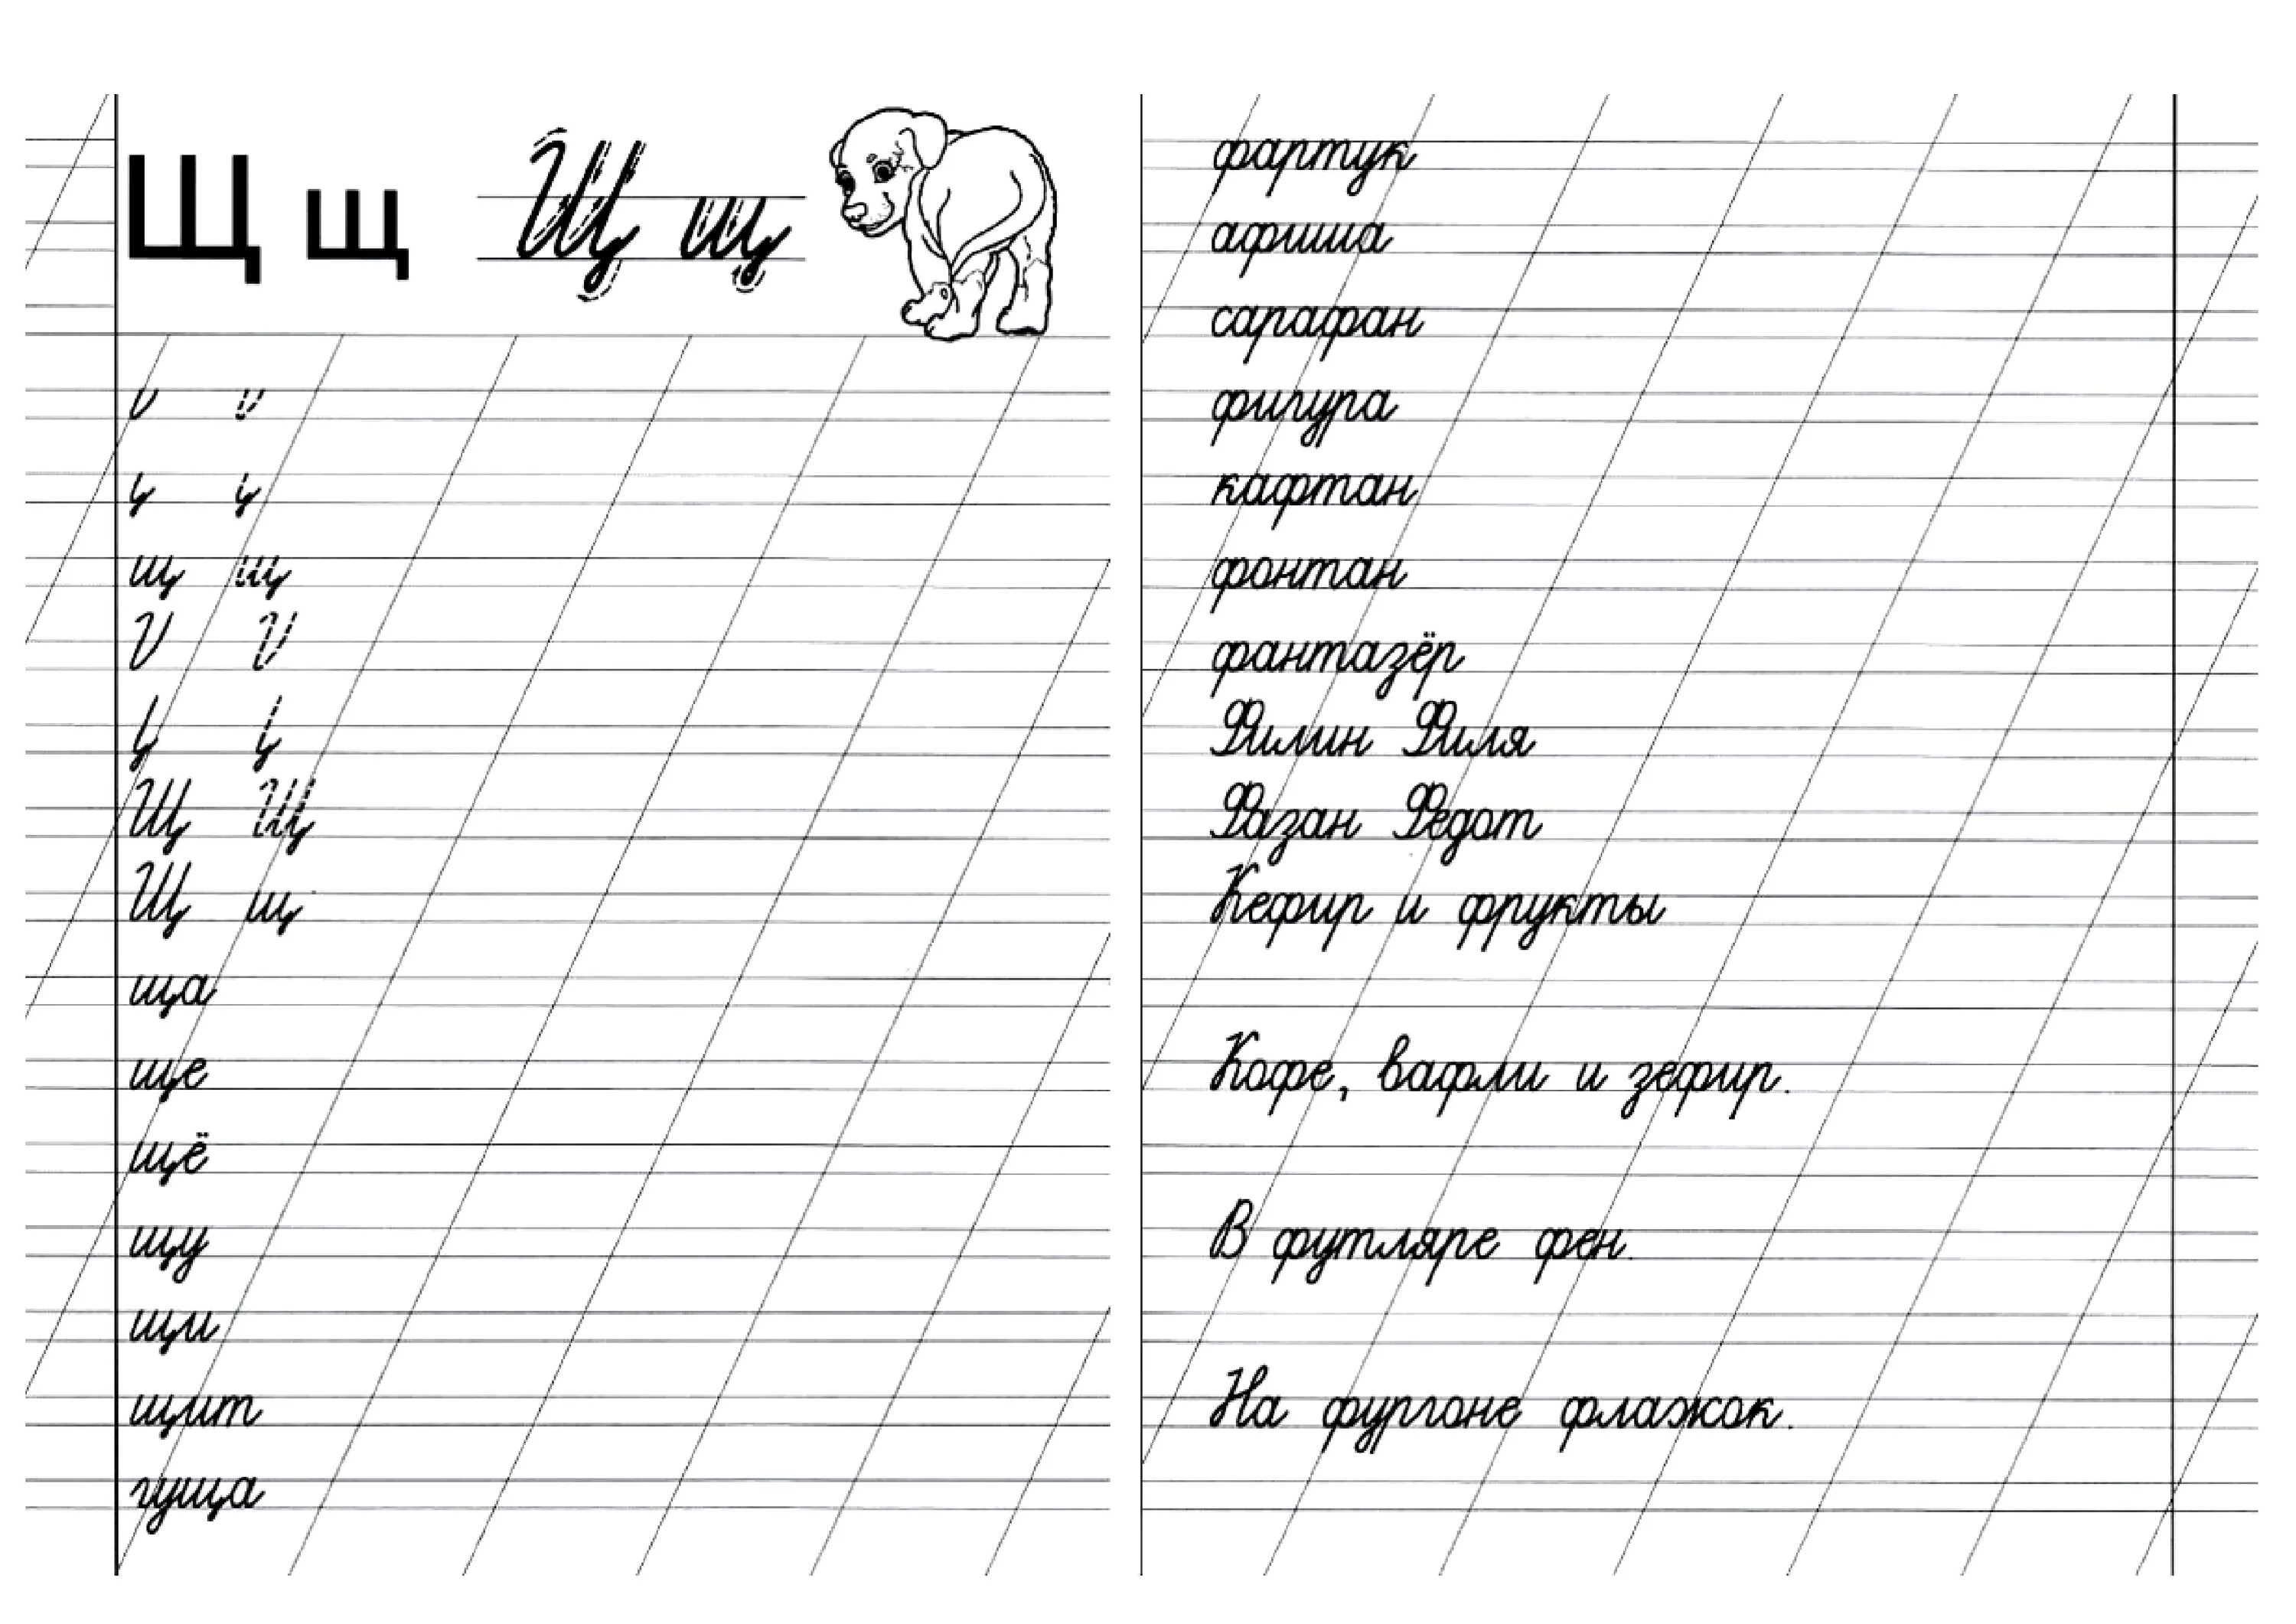 Щ щ Щ щ
щ щ
Щ Щ
Щ щ
ща
ще
щё
щу
щи
щит
гуща
фартук
афиша
сарафан
фигура
кафтан
фонтан
фантазёр
Филин Филя
Фазан Федот
Кефир и фрукты
Кофе, вафли и зефир.
В футляре фен.
На фургоне флажок.